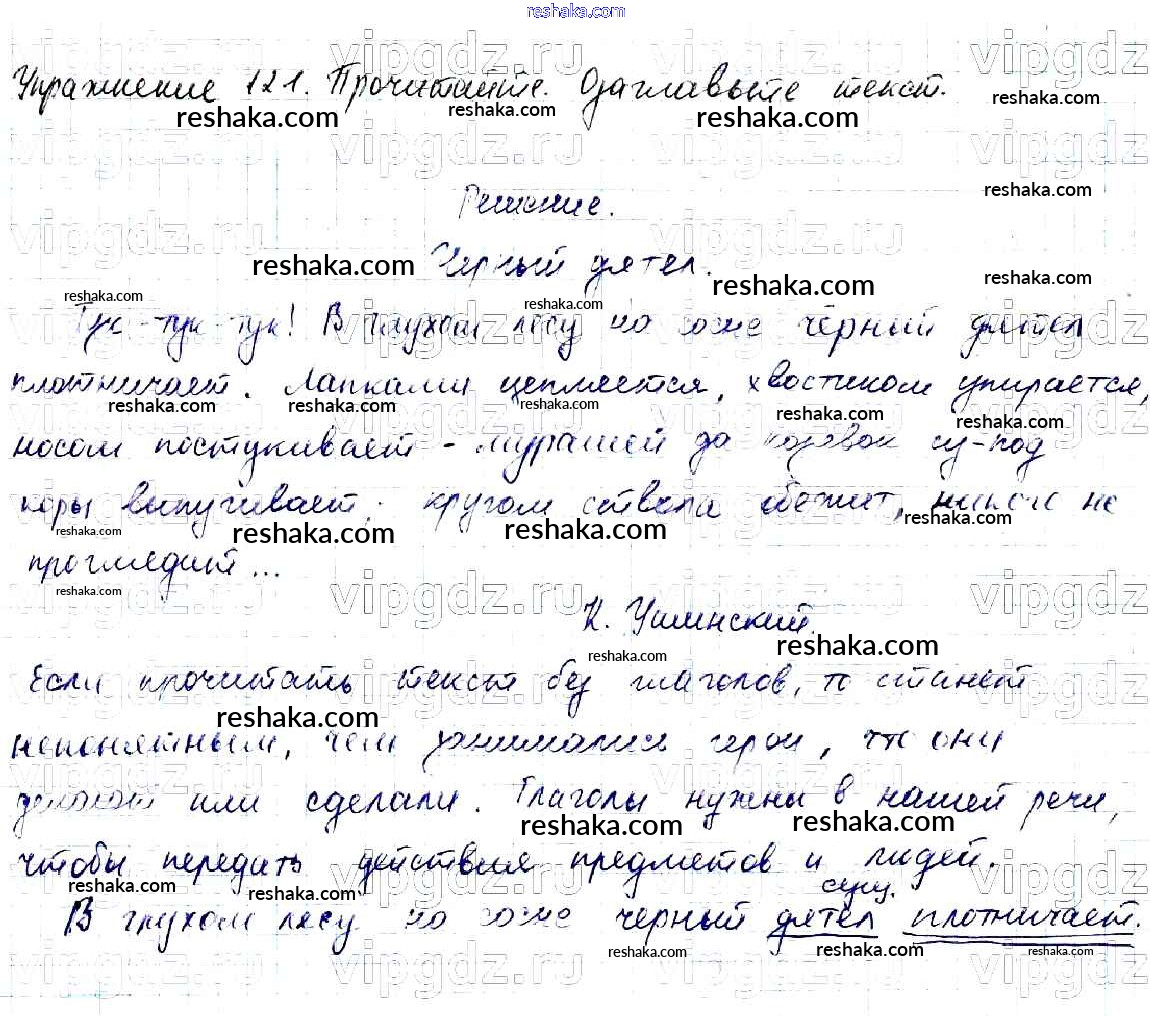 reshaka.com
Упражнение 121. Прочитайте. Озаглавьте текст.
Решение.
Черный дятел.
Тук-тук-тук! В глухом лесу на сосне чёрный дятел
плотничает. Лапками цепляется, хвостиком упирается,
носом постукивает - мурашей да козявок из-под
коры выпугивает; кругом ствола обежит, никого не
проглядит...
К. Ушинский.
Если прочитать текст без глаголов, то станет
непонятным, чем занимались герои, что они
делают или сделали. Глаголы нужны в нашей речи,
чтобы передать действия предметов и людей.
сущ.
В глухом лесу на сосне черный дятел плотничает.